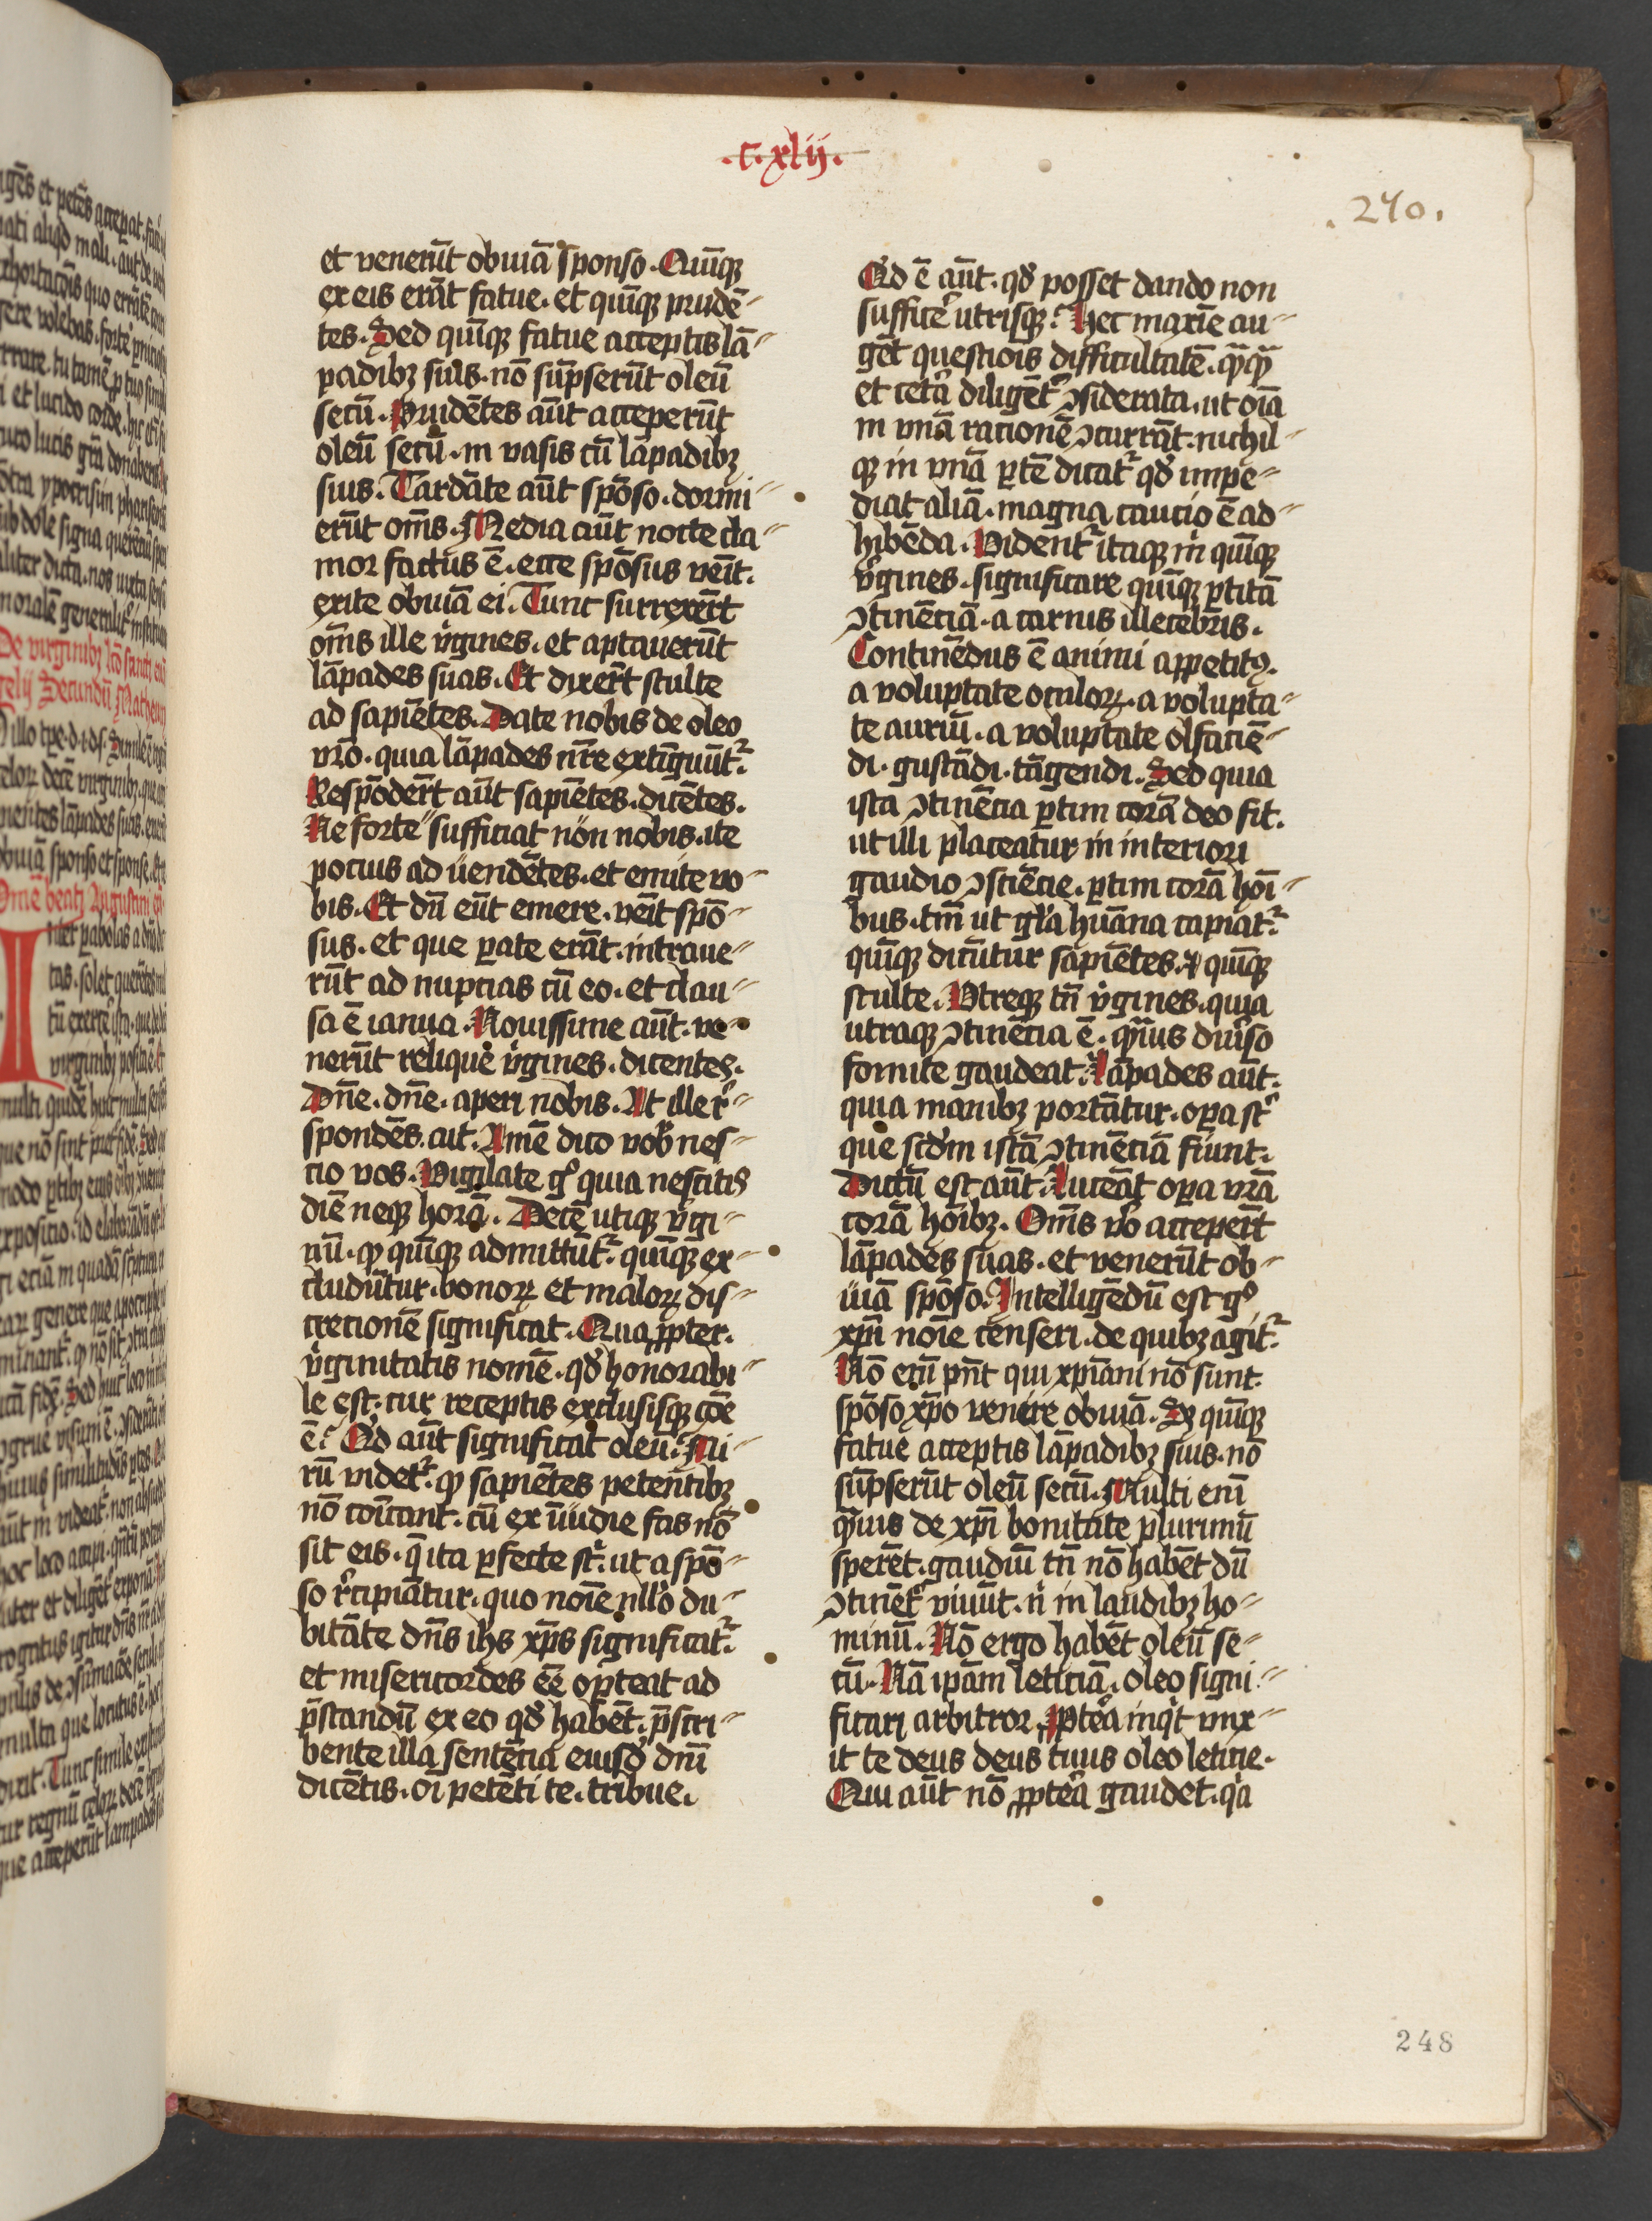 .c.xlij.
.240.
et venerūt obuiā sponso. Quīqꝫ
ex eis erāt fatue. et quīqꝫ prudē-
tes. Sed quīqꝫ fatue acceptis lā-
padibꝫ suis. nō sūpserūt oleū
secū. Prudētes aūt acceperūt
oleū secū. in vasis cū lāpadibꝫ
suis. Tardāte aūt spōso. dormi-
erūt om̄s. Media aūt nocte cla-
mor factus ē. ecce spōsus veīt.
exite obuiā ei. Tunc surrexer̄t
om̄s ille v̓gines. et aptauerūt
lāpades suas. Et dixer̄t stulte
ad sapiētes. Date nobis de oleo
vr̄o. quia lāpades nr̄e extīguūt᷑
Respōder̄t aūt sapiētes. dicētes.
Ne forte sufficiat non nobis. ite
pocius ad uendētes. et emite vo-
bis. Et dū eūt emere. veīt spō-
sus. et que ꝑate erāt. intraue-
rūt ad nupcias cū eo. et clau-
sa ē ianua. Nouissime aūt. ve-
nerūt relique v̓gines. dicentes.
Dn̄e. dn̄e. aperi nobis. At ille r̓-
spondēs. ait. Amē dico vob̓ nes-
cio vos. Vigilate gͦ quia nescitis
diē neqꝫ horā. Decē utiqꝫ v̓gi-
nū. ꝙ quīqꝫ admittūt᷑ quīqꝫ ex-
cludūtur. bonoꝝ et maloꝝ dis-
crecionē significat. Qua ꝓpter.
v̓ginitatis nomē. qd̓ honorabi-
le est. cur receptis exclusisqꝫ cōe
ē? Qd̓ aūt significat oleū? Mi-
rū videt᷑ ꝙ sapiētes petentibꝫ
nō cōīcant. cū ex īuidie fas nō
sit eis. q̄ ita ꝑfecte st̓. ut a spō-
so r̓cipiātur. quo noīe nllō du-
bitāte dn̄s ih̄s xp̄s significat᷑
et misericordes eē oꝑteat ad
p̄standū ex eo qd̓ habēt. p̄scri-
bente illa sentēcia eiusd̓ dn̄i
dicētis. oī petēti te. tribue.
Qd̓ ē aūt. qd̓ posset dando non
suffic̓e utrisqꝫ? Hec maxīe au-
gēt questiois difficultatē. qᷓqᷓ
et cetā diligēt᷑ ꝯsiderata. ut oīa
in vnā racionē ꝯcurrāt. nichil-
qꝫ in vnā ꝑtē dicat᷑ qd̓ impe-
diat aliā. magna caucio ē ad-
hibēda. Vident᷑ itaqꝫ m̓ quīqꝫ
v̓gines. significare quīqꝫ ꝑtitā
ꝯtinēciā. a carnis illecebris.
Continēdus ē animi appetitꝰ.
a voluptate oculoꝝ. a volupta-
te auriū. a voluptate olfaciē-
di. gustādi. tāgendi. Sed quia
ista ꝯtinēcia ꝑtim corā deo fit.
ut illi placeatur in interiori
gaudio ꝯsciēcie. ꝑtim corā hoī-
bus. tm̄ ut gl̓a huāna capiat᷑
quīqꝫ dicūtur sapiētes. ⁊ quīqꝫ
stulte. Vtreqꝫ tn̄ v̓gines. quia
utraqꝫ ꝯtinēcia ē. qᷓuis diu̓so
fomite gaudeat. Lāpades aūt.
quia manibꝫ portātur. oꝑa st̓
que scd̓m istā ꝯtinēciā fiunt.
Dictū est aūt. Luceāt oꝑa vr̄a
corā hoībꝫ. Om̄s v̓o acceper̄t
lāpades suas. et venerūt ob-
uiā spōso. Intelligēdū est gͦ
xp̄i noīe censeri. de quibꝫ agit᷑
Nō enī pn̄t qui xp̄iani nō sunt.
spōso xp̄o venire obuiā. Sꝫ quīqꝫ
fatue acceptis lāpadibꝫ suis. nō
sūpserūt oleū secū. Multi enī
qᷓuis de xp̄i bonitate plurimū
sperēt. gaudiū tn̄ nō habēt dū
ꝯtinēt᷑ viuūt. n̓ in laudibꝫ ho-
minū. Nō ergo habēt oleū se-
cū. Nā ip̄am leticiā. oleo signi-
ficari arbitror. Ꝓptea inqͥt unx-
it te deus deus tuus oleo leticie.
Qui aūt nō ꝓptea gaudet. qͥa
248